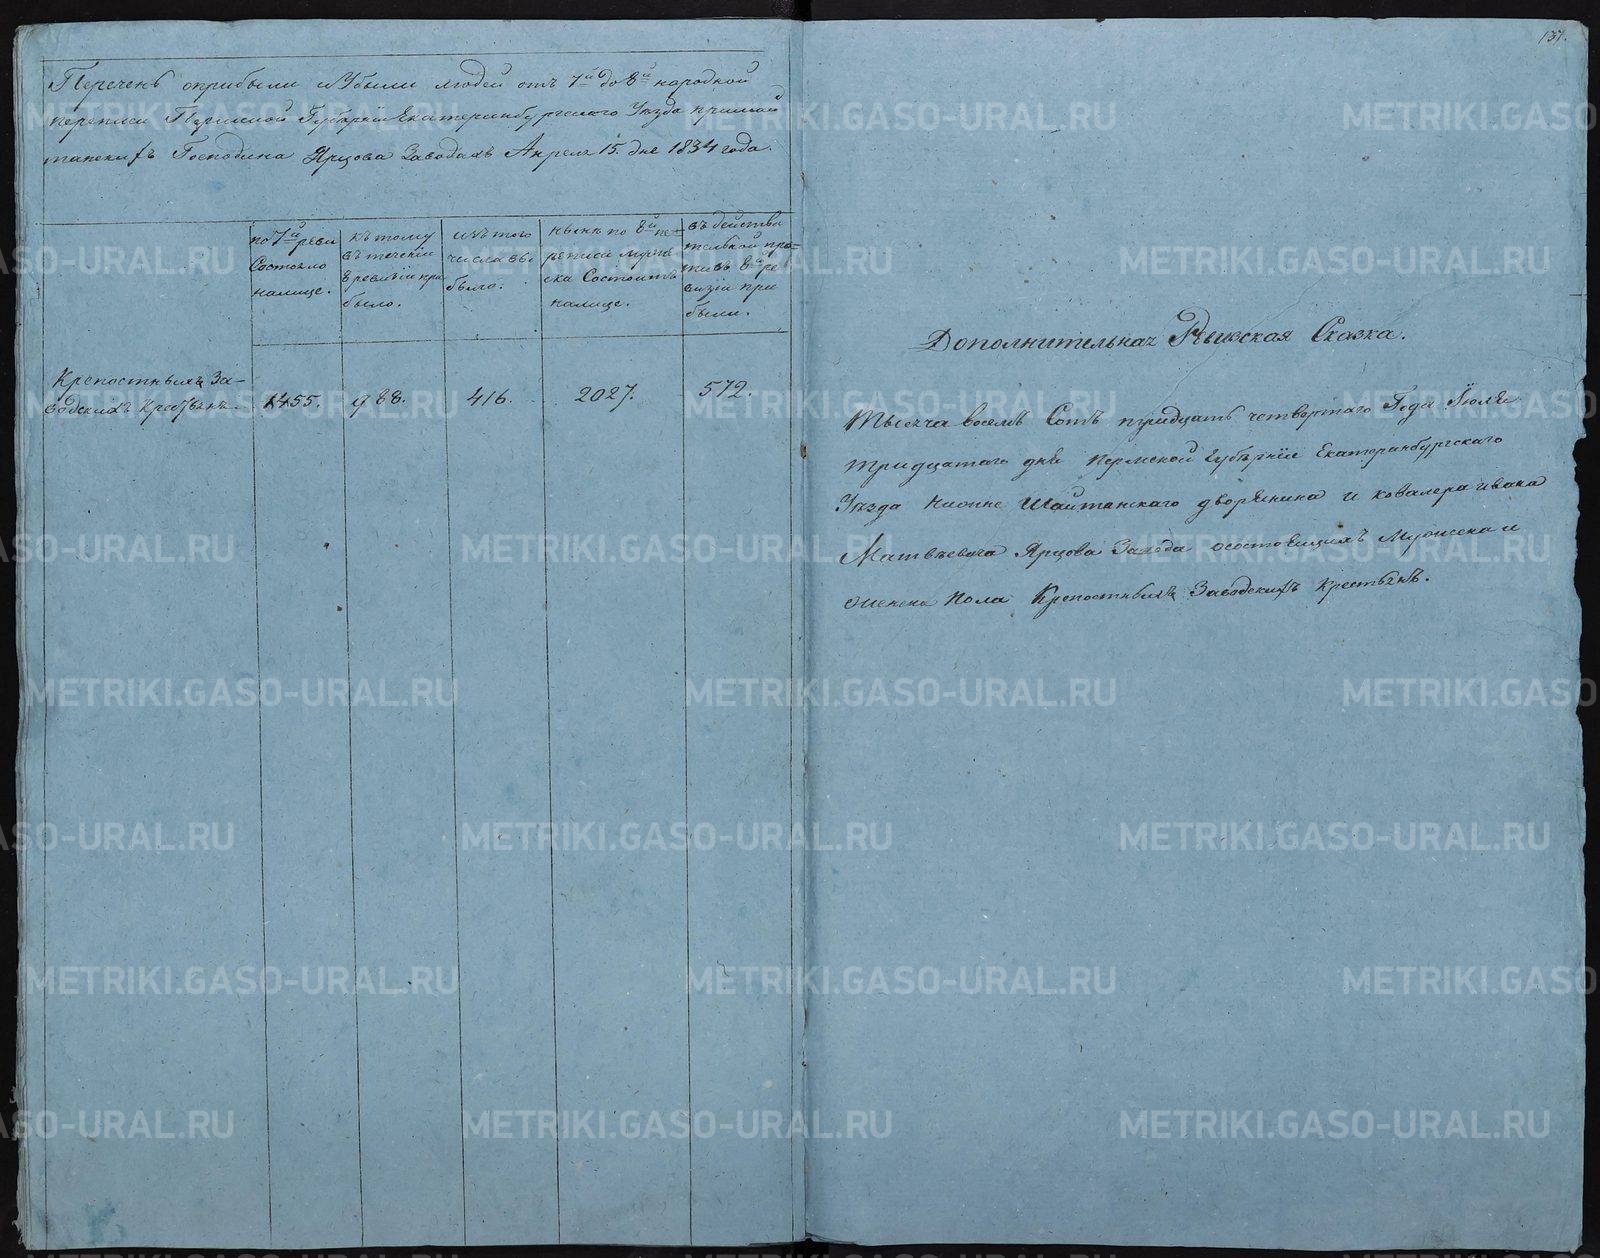 Перечень оприбыли иУбыли людей отъ 7й до 8й народной
переписи Пермской Губернiи Екатеринбургскаго Уезда пришай
танскихъ Господина Ярцова Заводахъ Апреля 15. дня 1834 года.
по 7й реви
Состояло
налице.
къ тому
въ течении
время при
было.
изъ того
числа вы
было.
ныне по 8й пе-
реписи мужес
ска Состоитъ
налице.
въ действи
тельной про-
тивъ 8й ре
визiи при
были.
Крепостныхъ За-
водскихъ Крестьянъ
1455. 988. 416. 2027. 572.
131.
Дополнительная Ревизская Сказка.
Тысяча восемь Сотъ тридцать четвертаго Года Iюля
тридцатаго дня Пермской Губернiи Екатеринбургскаго
Уезда Шайтанскаго дворянина и ковалера ивана
Матвеевича Ярцова Завода осостоящихъ Мужеска и
женска Пола Крепостныхъ Заводскихъ крестьянъ.
METRIKI.GASO-URAL.RU